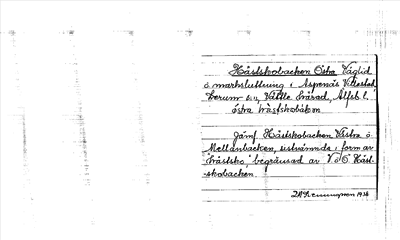 Hästskobacken Östra Väglid
o markslutttning i Aspenäs Villastad,
Lerum s:n, Vättle härad, Älfsb. l.
östra hästskobäken
Jämf. Hästskobacken Västra o
Mellanbacken, sistnämnda i form av
"hästsko", begränsad av V o Ö Häst-
skobacken.
1938